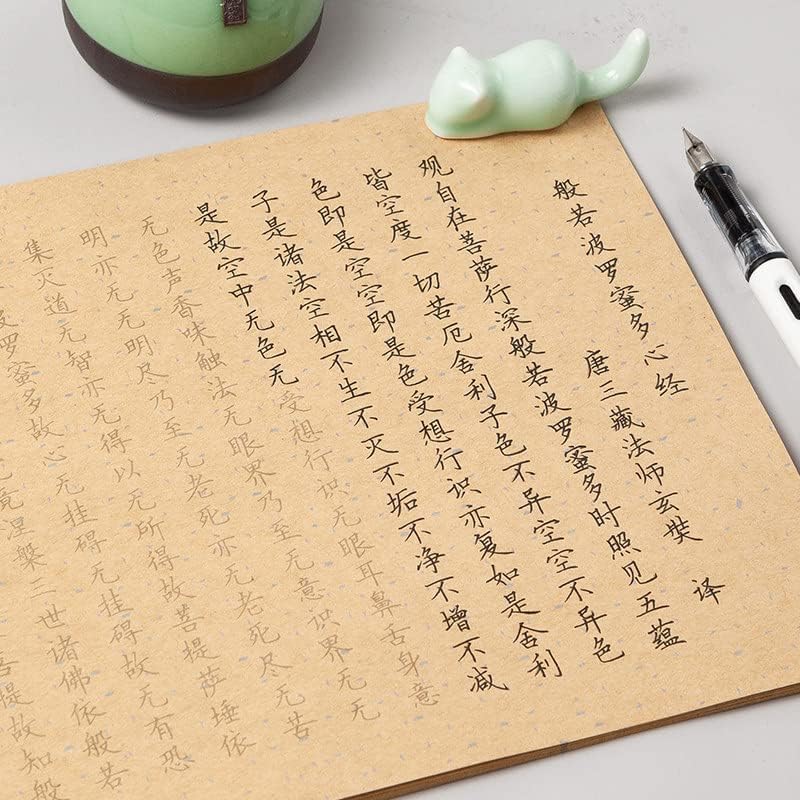 般若波罗蜜多心经
唐三藏法师玄奘 译
观自在菩萨行深般若波罗蜜多时照见五蕴
皆空度一切苦厄舍利子色不异空空不异色
色即是空空即是色受想行识亦复如是舍利
子是诸法空相不生不灭不垢不净不增不减
是故空中无色无受想行识无眼耳鼻舌身意
无色声香味触法无眼界乃至无意识界无无
明亦无无明尽乃至无老死亦无老死尽无苦
集灭道无智亦无得以无所得故菩提萨埵依
波罗蜜多故心无挂碍无挂碍故无有恐
竟涅槃三世诸佛依般若
菩提故知般